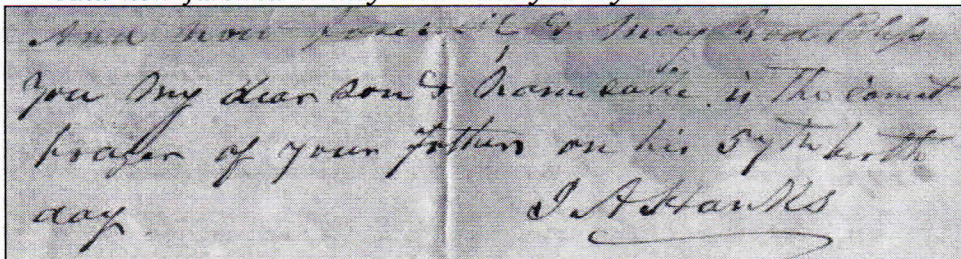 And now farewell & May God Bless
you My dear son & Namesake is the earnest
prayer of your Father on his 57th birth
day
J A Hanks